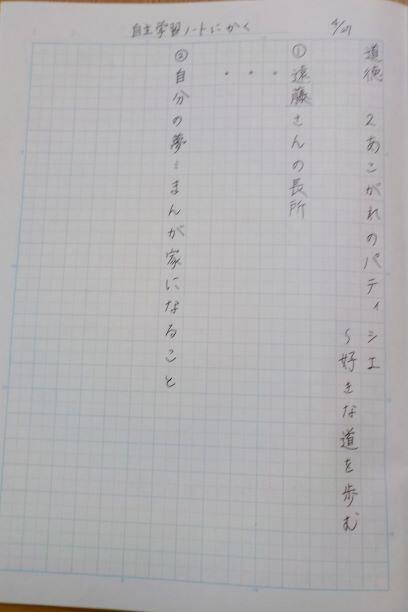 自主学習ノートにかく
4/27
道徳 2 あこがれのパティシエ
〜好きな道を歩む
① 遠藤さんの長所
・
・
・
② 自分の夢：まんが家になること